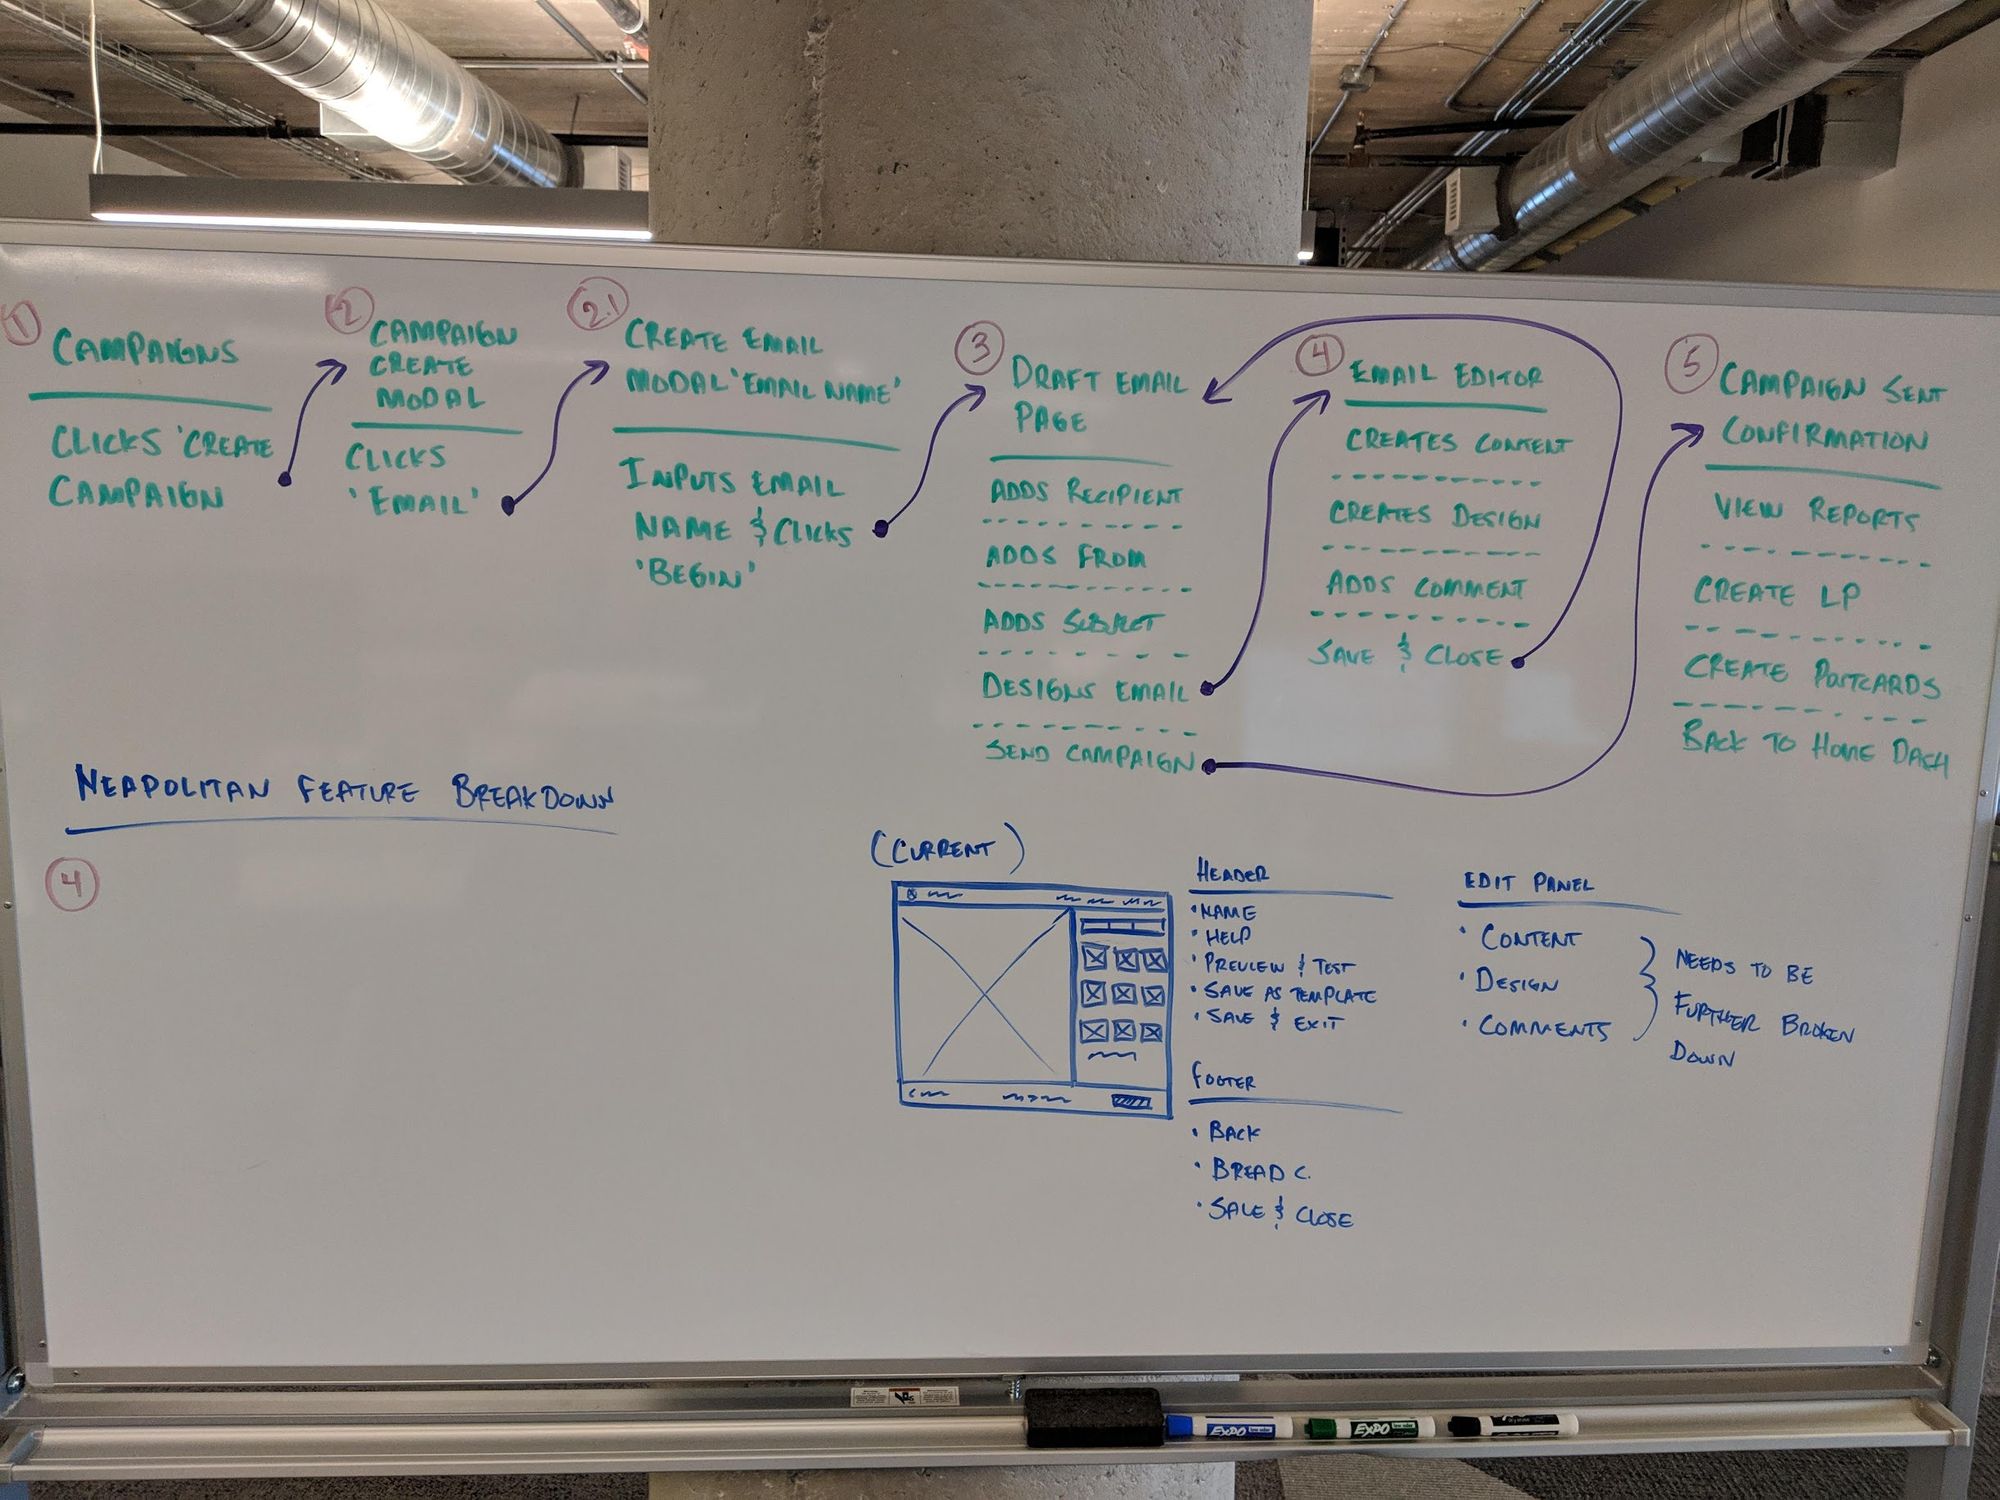 1
CAMPAIGNS
CLICKS 'CREATE
CAMPAIGN
2
CAMPAIGN
CREATE
MODAL
CLICKS
'EMAIL'
2.1
CREATE EMAIL
MODAL 'EMAIL NAME'
INPUTS EMAIL
NAME & CLICKS
'BEGIN'
3
DRAFT EMAIL
PAGE
ADDS RECIPIENT
ADDS FROM
ADDS SUBJECT
DESIGNS EMAIL
SEND CAMPAIGN
4
EMAIL EDITOR
CREATES CONTENT
CREATES DESIGN
ADDS COMMENT
SAVE & CLOSE
5
CAMPAIGN SENT
CONFIRMATION
VIEW REPORTS
CREATE LP
CREATE POSTCARDS
BACK TO HOME DASH
NEAPOLITAN FEATURE BREAKDOWN
4
(CURRENT)
HEADER
• NAME
• HELP
• PREVIEW & TEST
• SAVE AS TEMPLATE
• SAVE & EXIT
FOOTER
• BACK
• BREAD C.
• SAVE & CLOSE
EDIT PANEL
• CONTENT
• DESIGN
• COMMENTS
NEEDS TO BE
FURTHER BROKEN
DOWN
EXPO
EXPO